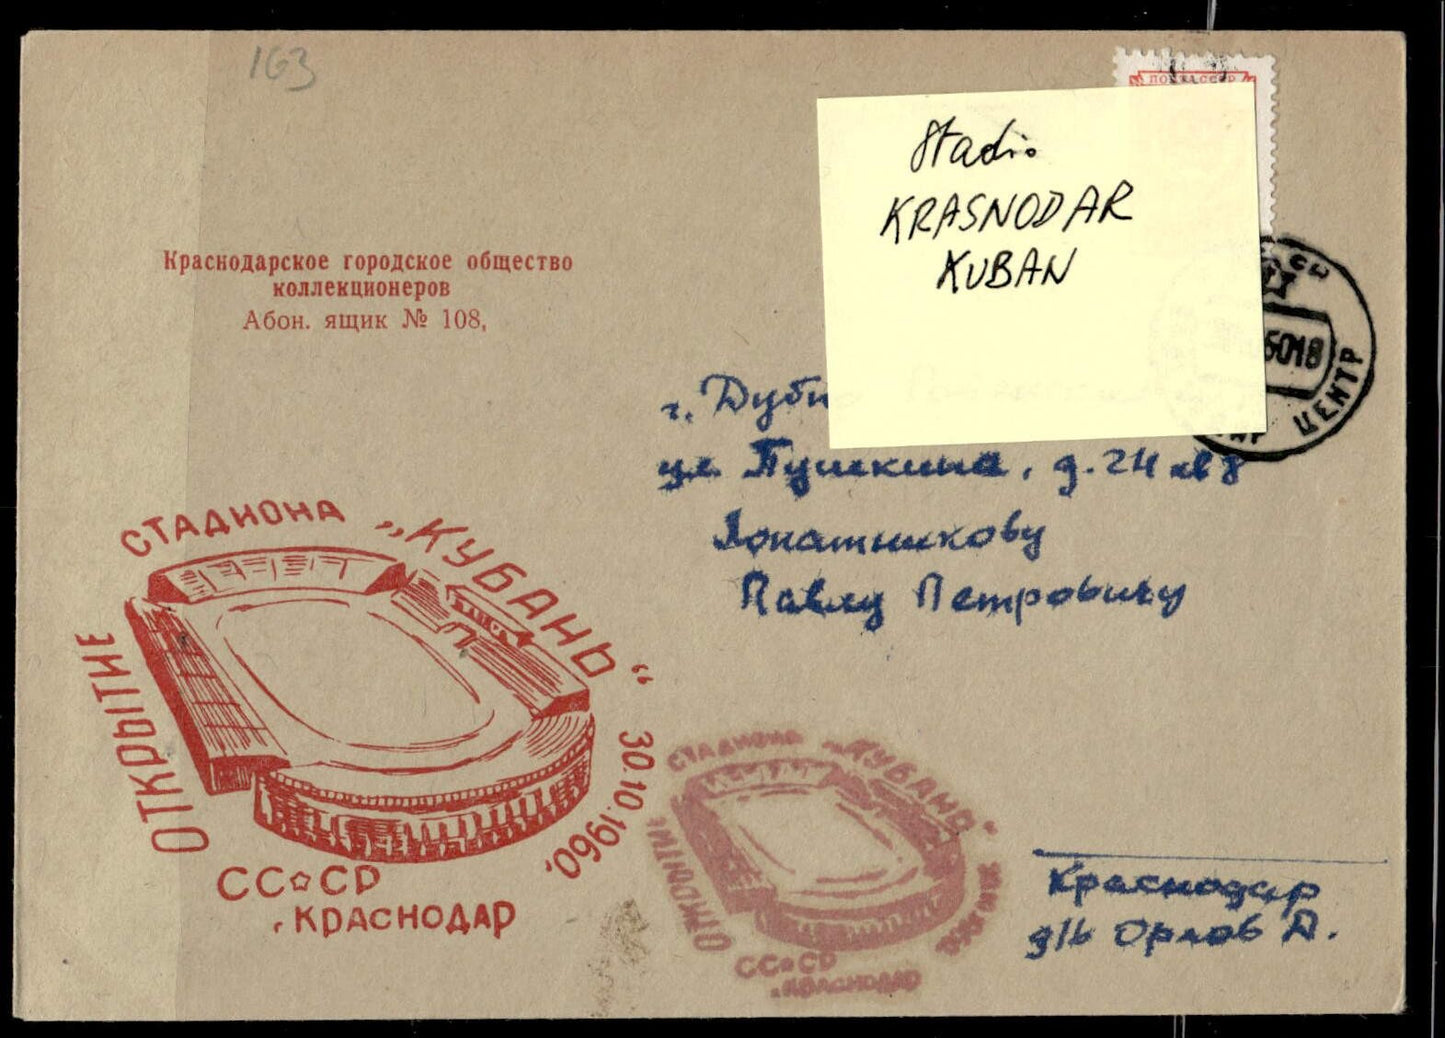 163
ПОЧТА СССР
Stadio
KRASNODAR
KUBAN
Краснодарское городское общество
коллекционеров
Абон. ящик № 108,
6018
ЦЕНТР
г. Дубн
ул. Пушкина, д. 24 кв 8
Лопатникову
Павлу Петровичу
ОТКРЫТИЕ СТАДИОНА „КУБАНЬ“ 30.10.1960.
СССР
г. КРАСНОДАР
ОТКРЫТИЕ СТАДИОНА „КУБАНЬ“ 30.10.1960.
СССР
г. КРАСНОДАР
Краснодар
д/в Орлов А.